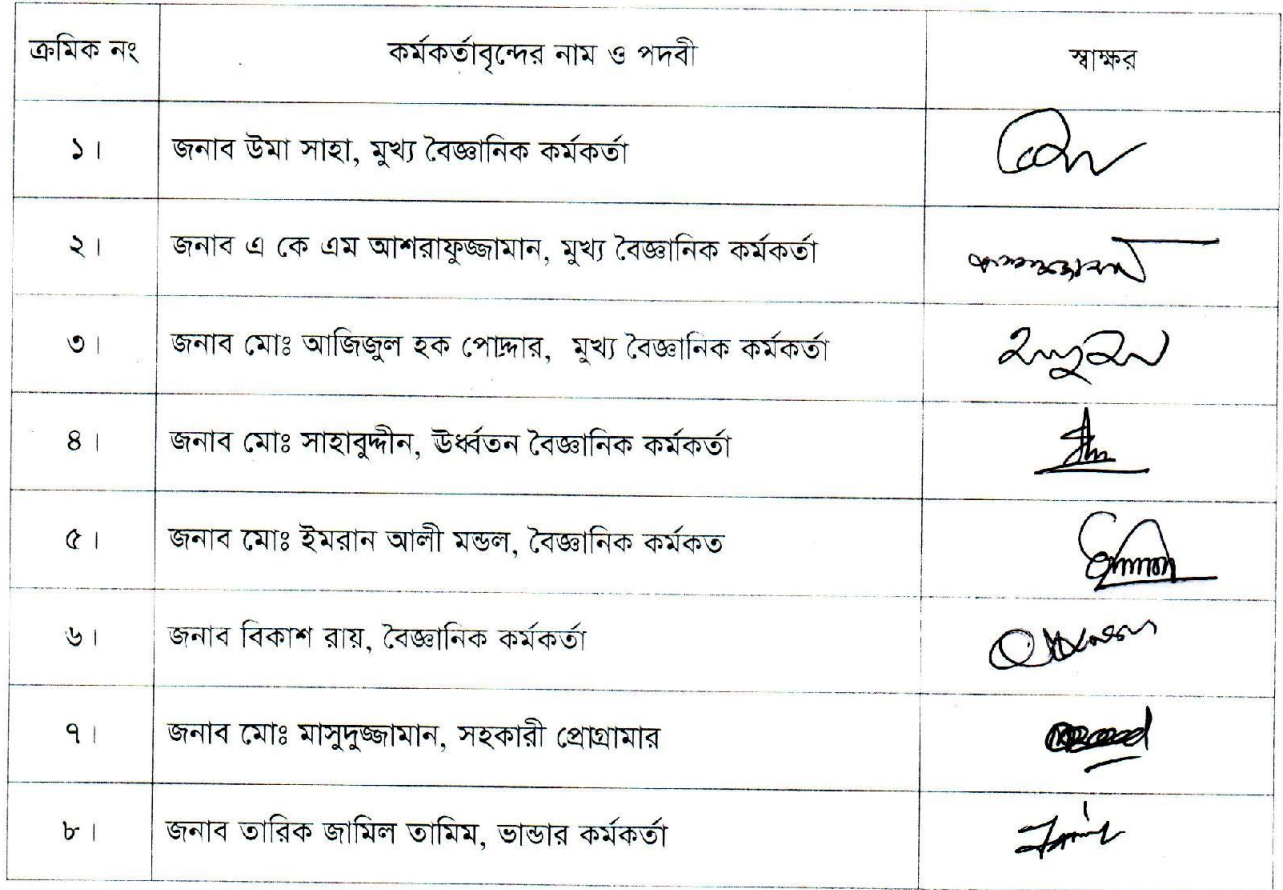 ক্রমিক নং কর্মকর্তাবৃন্দের নাম ও পদবী স্বাক্ষর
১। জনাব উমা সাহা, মুখ্য বৈজ্ঞানিক কর্মকর্তা
২। জনাব এ কে এম আশরাফুজ্জামান, মুখ্য বৈজ্ঞানিক কর্মকর্তা
৩। জনাব মোঃ আজিজুল হক পোদ্দার, মুখ্য বৈজ্ঞানিক কর্মকর্তা
৪। জনাব মোঃ সাহাবুদ্দীন, ঊর্ধ্বতন বৈজ্ঞানিক কর্মকর্তা
৫। জনাব মোঃ ইমরান আলী মন্ডল, বৈজ্ঞানিক কর্মকত
৬। জনাব বিকাশ রায়, বৈজ্ঞানিক কর্মকর্তা
৭। জনাব মোঃ মাসুদুজ্জামান, সহকারী প্রোগ্রামার
৮। জনাব তারিক জামিল তামিম, ভান্ডার কর্মকর্তা